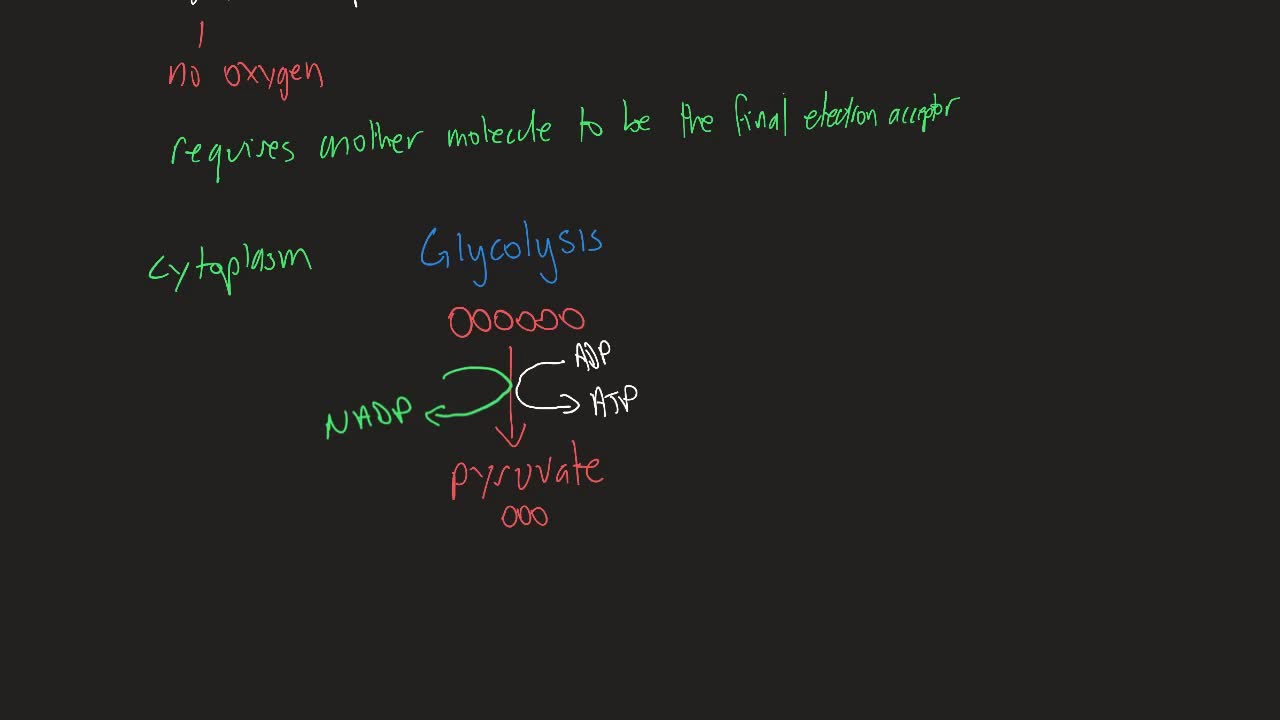 no oxygen
requires another molecule to be the final electron acceptor
Cytoplasm
Glycolysis
ADP
ATP
NADP
pyruvate